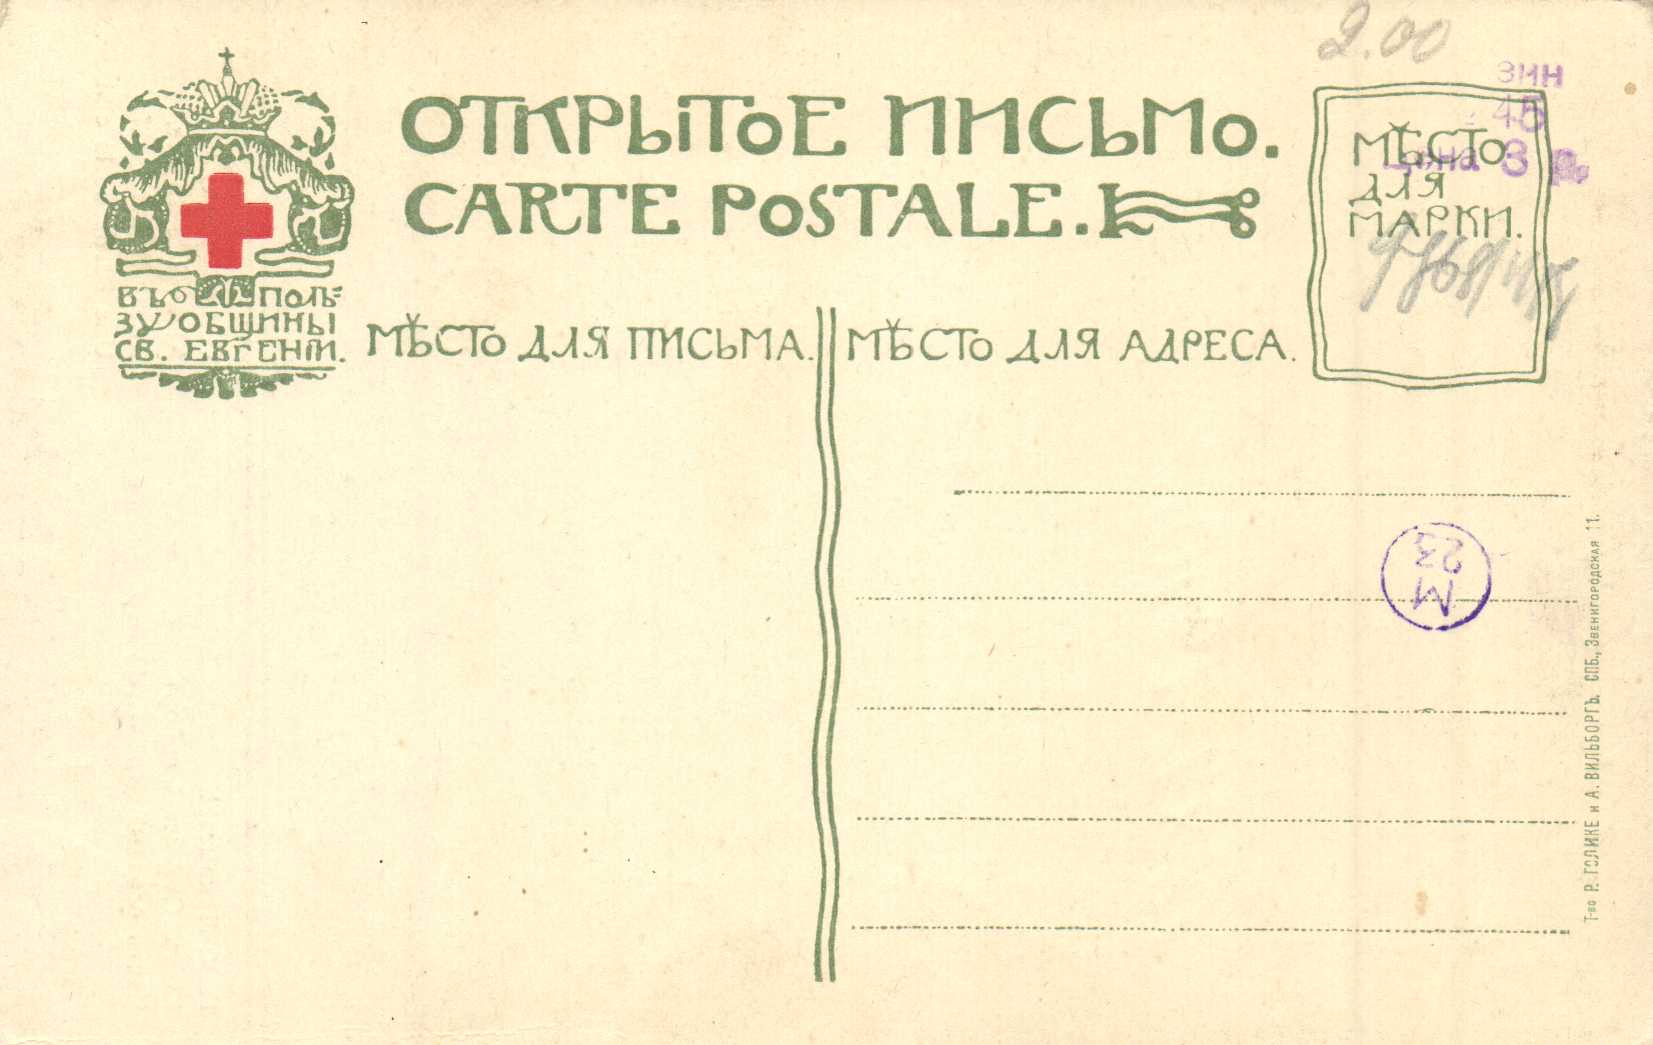 2.00
ОТКРЫТОЕ ПИСЬМО.
CARTE POSTALE.
МѢСТО
ДЛЯ
МАРКИ.
ЗИН
45
Цена 3 р.
ВЪ ПОЛЬ-
ЗУ ОБЩИНЫ
СВ. ЕВГЕНІИ.
МѢСТО ДЛЯ ПИСЬМА.
МѢСТО ДЛЯ АДРЕСА.
М
23
Т-во Р. ГОЛИКЕ и А. ВИЛЬБОРГЪ. СПБ., ЗВЕНИГОРОДСКАЯ 11.